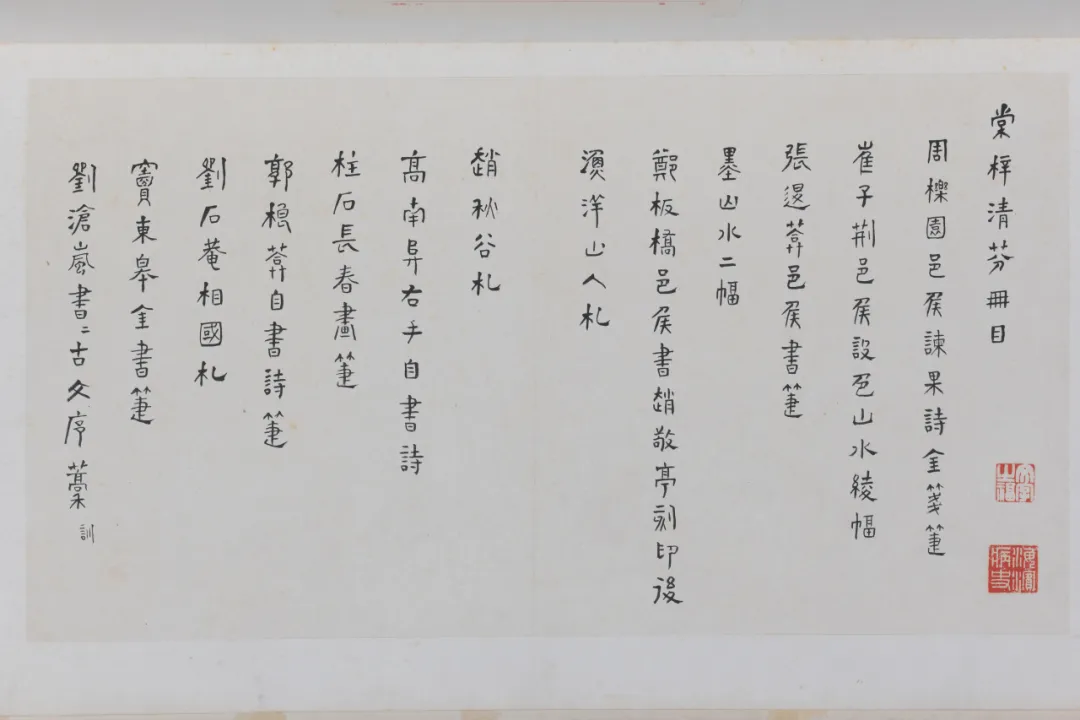 棠梓清芬冊目
周櫟園邑矦諫果詩金箋箑
崔子荆邑矦設色山水綾幅
張退葊邑矦書箑
墨山水二幅
鄭板橋邑矦書趙敬亭刻印後
澒洋山人札
趙秋谷札
高南阜右手自書詩
柱石長春畫箑
郭櫓葊自書詩箑
劉石菴相國札
竇東皋金書箑
劉滄嵐書二古文序藁
訓
文字之福
海濱病史